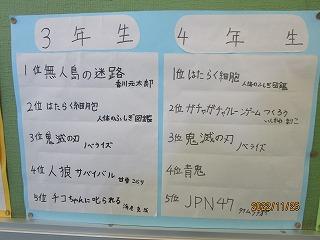 3年生
1位 無人島の迷路
香川元太郎
2位 はたらく細胞
人体のふしぎ図鑑
3位 鬼滅の刃
ノベライズ
4位 人狼サバイバル
甘雪こおり
5位 チコちゃんに叱られる
4年生
1位 はたらく細胞
人体のふしぎ図鑑
2位 ガチャガチャクレーンゲームつくろう
3位 鬼滅の刃
ノベライズ
4位 青鬼
5位 JPN47
2022/11/25